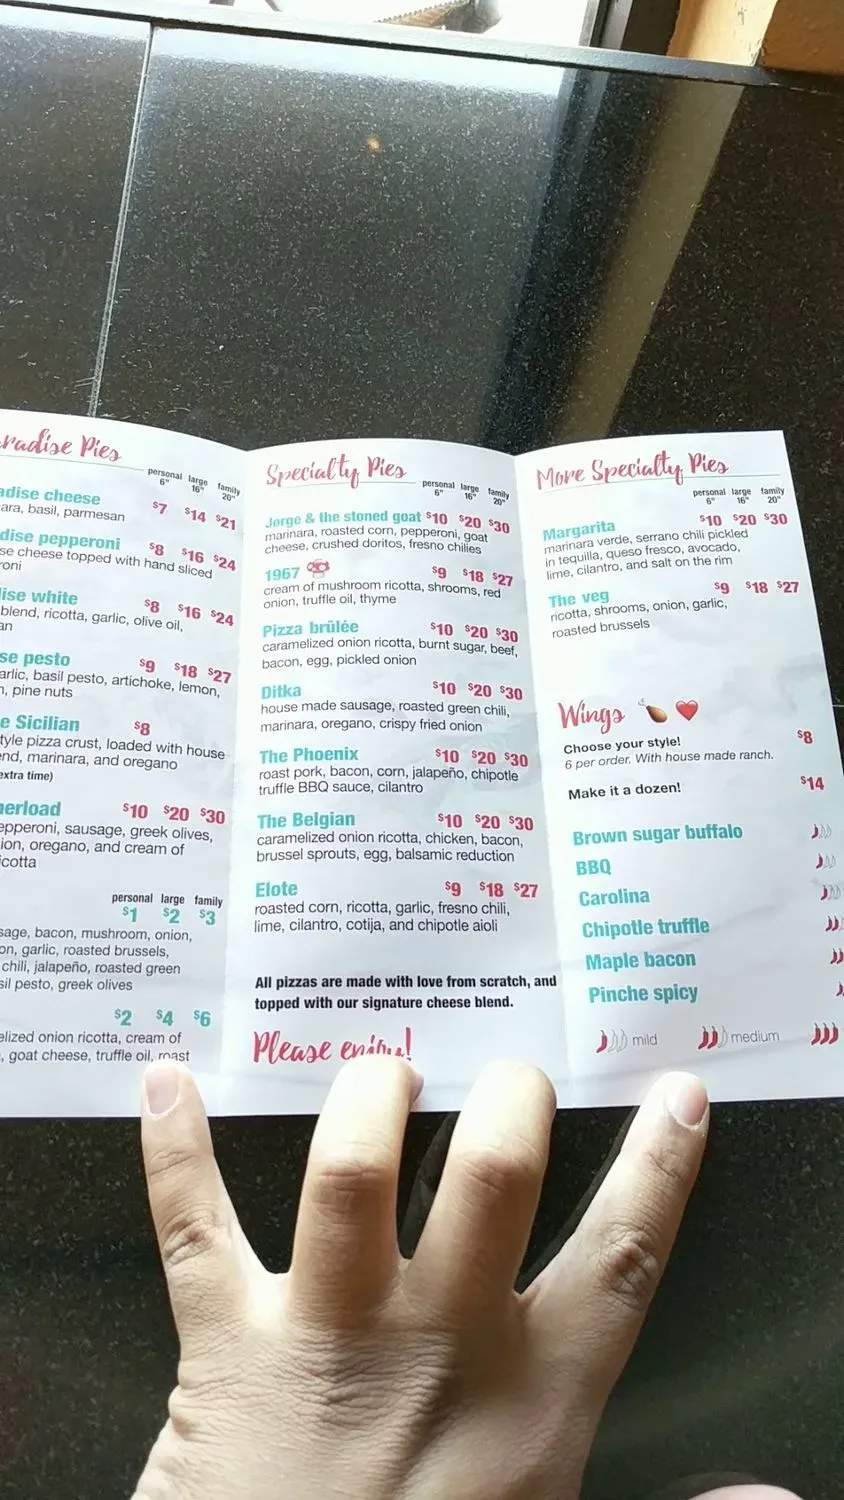 Pies
personal large family
6" 16" 20"
cheese
$7 $14 $21
basil, parmesan
pepperoni
$8 $16 $24
cheese topped with hand sliced
white
$8 $16 $24
blend, ricotta, garlic, olive oil,
pesto
$9 $18 $27
basil pesto, artichoke, lemon,
pine nuts
Sicilian $8
pizza crust, loaded with house
marinara, and oregano
extra time)
$10 $20 $30
sausage, greek olives,
oregano, and cream of
personal large family
$1 $2 $3
bacon, mushroom, onion,
garlic, roasted brussels,
chili, jalapeño, roasted green
pesto, greek olives
$2 $4 $6
onion ricotta, cream of
goat cheese, truffle oil, roast
Specialty Pies
personal large family
6" 16" 20"
Jorge & the stoned goat $10 $20 $30
marinara, roasted corn, pepperoni, goat
cheese, crushed doritos, fresno chilies
1967 $9 $18 $27
cream of mushroom ricotta, shrooms, red
onion, truffle oil, thyme
Pizza brülée $10 $20 $30
caramelized onion ricotta, burnt sugar, beef,
bacon, egg, pickled onion
Ditka $10 $20 $30
house made sausage, roasted green chili,
marinara, oregano, crispy fried onion
The Phoenix $10 $20 $30
roast pork, bacon, corn, jalapeño, chipotle
truffle BBQ sauce, cilantro
The Belgian $10 $20 $30
caramelized onion ricotta, chicken, bacon,
brussel sprouts, egg, balsamic reduction
Elote $9 $18 $27
roasted corn, ricotta, garlic, fresno chili,
lime, cilantro, cotija, and chipotle aioli
All pizzas are made with love from scratch, and
topped with our signature cheese blend.
Please enjoy!
More Specialty Pies
personal large family
6" 16" 20"
Margarita $10 $20 $30
marinara verde, serrano chili pickled
in tequila, queso fresco, avocado,
lime, cilantro, and salt on the rim
The veg $9 $18 $27
ricotta, shrooms, onion, garlic,
roasted brussels
Wings
Choose your style! $8
6 per order. With house made ranch.
Make it a dozen! $14
Brown sugar buffalo
BBQ
Carolina
Chipotle truffle
Maple bacon
Pinche spicy
mild medium